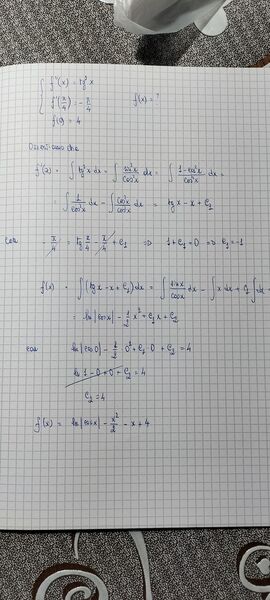 f''(x) = tg²x
f'(π/4) = -π/4 f(x) = ?
f(0) = 4
Osserviamo che
f'(x) = ∫ tg²x dx = ∫ sin²x/cos²x dx = ∫ 1-cos²x/cos²x dx =
= ∫ 1/cos²x dx - ∫ cos²x/cos²x dx = tg x - x + C₁
con -π/4 = tg π/4 - π/4 + C₁ ⇒ 1 + C₁ = 0 ⇒ C₁ = -1
f(x) = ∫ (tg x - x + C₁) dx = ∫ sin x/cos x dx - ∫ x dx + C₁ ∫ dx =
= ln|cos x| - 1/2 x² + C₁x + C₂
con ln|cos 0| - 1/2 0² + C₁ · 0 + C₂ = 4
ln 1 - 0 + 0 + C₂ = 4
C₂ = 4
f(x) = ln|cos x| - x²/2 - x + 4